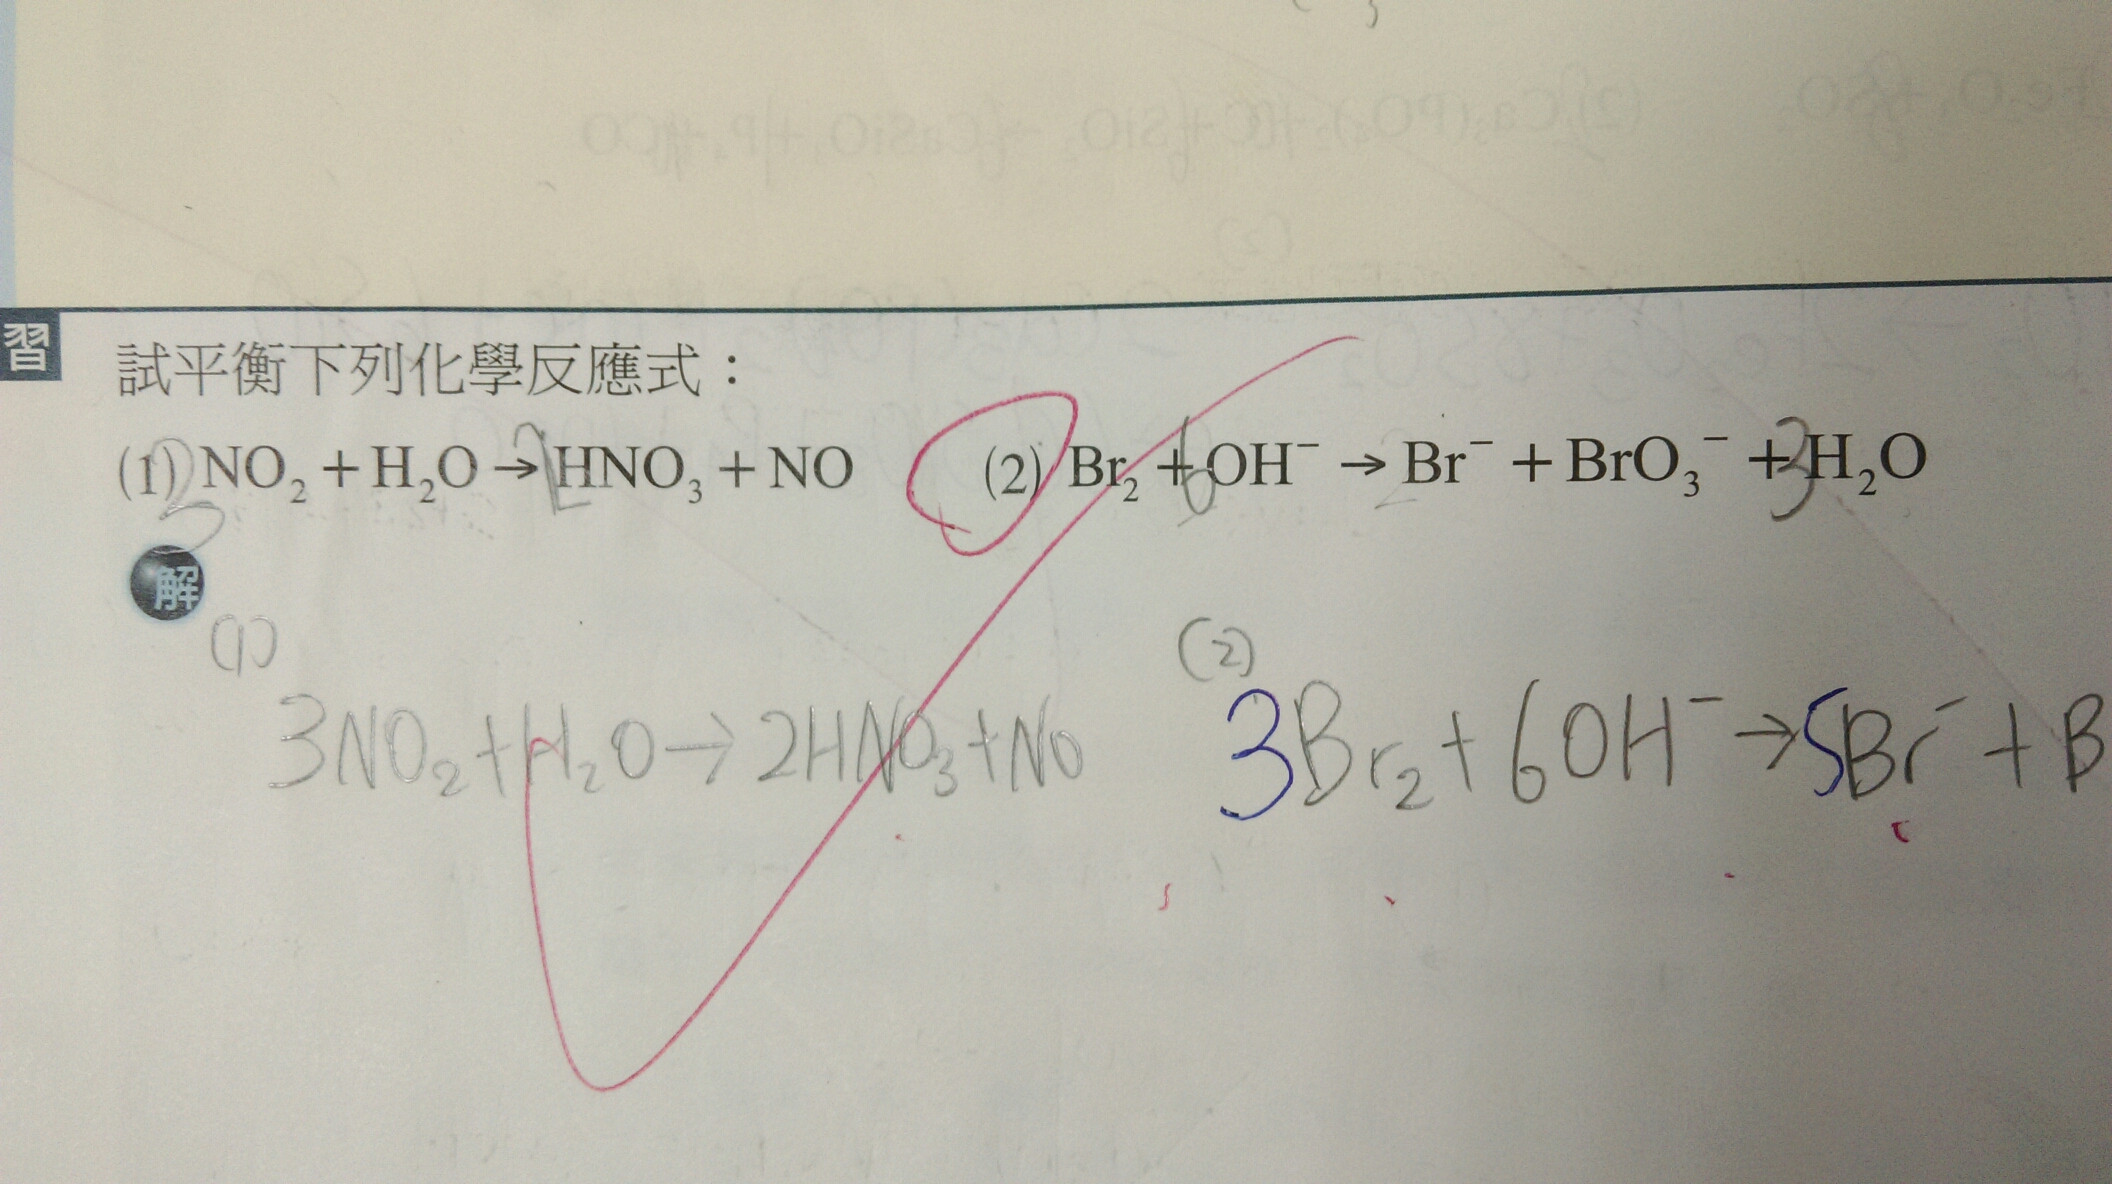 習
試平衡下列化學反應式：
(1) 3NO₂ + H₂O → 2HNO₃ + NO (2) Br₂ + 6OH⁻ → Br⁻ + BrO₃⁻ + 3H₂O
解
(1)
3NO₂+H₂O→2HNO₃+NO
(2)
3Br₂+6OH⁻→5Br⁻+B